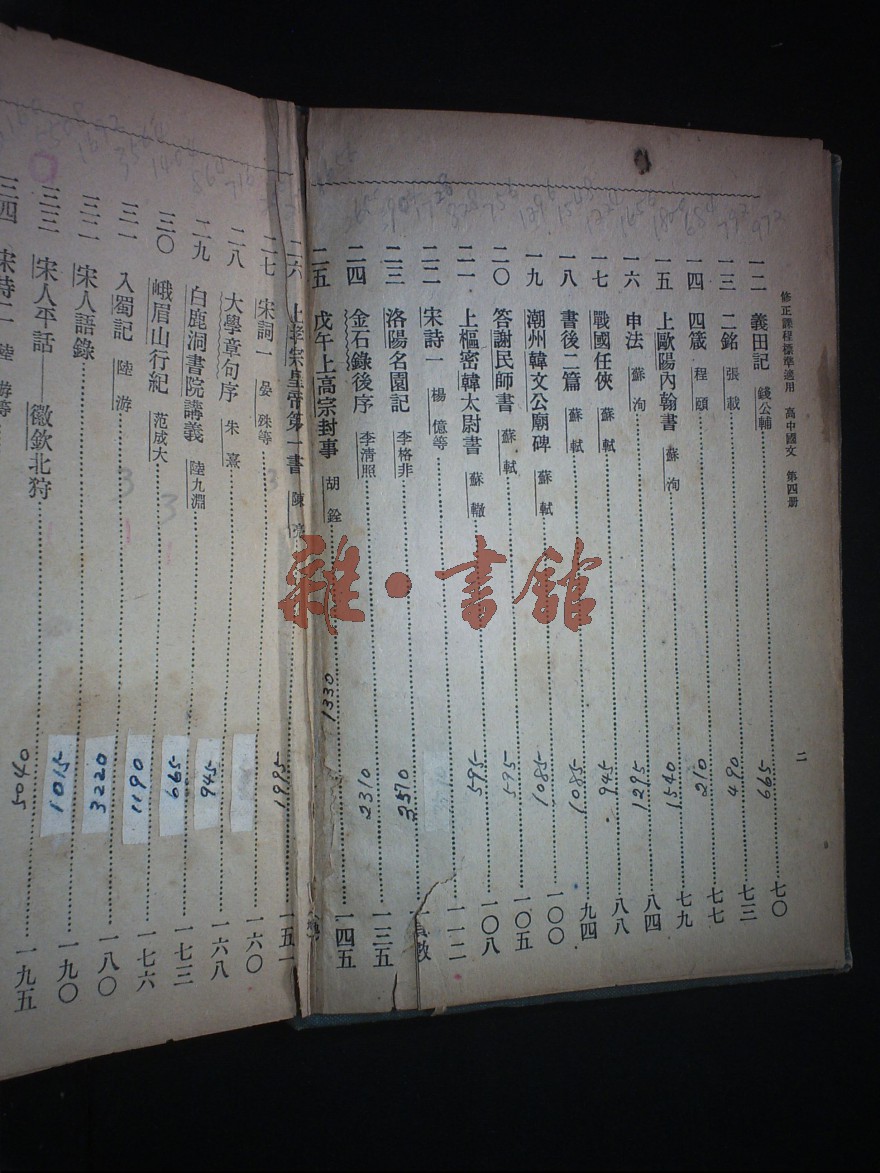 修正課程標準適用 高中國文 第四册
二
一二 義田記 錢公輔 665 七〇
一三 二銘 張載 490 七三
一四 四箴 程頤 210 七七
一五 上歐陽內翰書 蘇洵 1540 七九
一六 申法 蘇洵 1295 八四
一七 戰國任俠 蘇軾 945 八八
一八 書後二篇 蘇軾 1085 九四
一九 潮州韓文公廟碑 蘇軾 1085 一〇〇
二〇 答謝民師書 蘇軾 595 一〇五
二一 上樞密韓太尉書 蘇轍 595 一〇八
二二 宋詩一 楊億等 一一二
二三 洛陽名園記 李格非 3570
二四 金石錄後序 李清照 2310 一三五
二五 戊午上高宗封事 胡銓 1330 一四五
二六 上孝宗皇帝第一書 陳亮 一五一
二七 宋詞一 晏殊等 1995 一六〇
二八 大學章句序 朱熹 一六八
二九 白鹿洞書院講義 陸九淵 945 一七三
三〇 峨眉山行紀 范成大 665 一七六
三一 入蜀記 陸游 1190 一八〇
三二 宋人語錄 3220 一九〇
三三 宋人平話 徽欽北狩 1015 一九五
三四 宋詩二 陸游等 5040
雜·書館